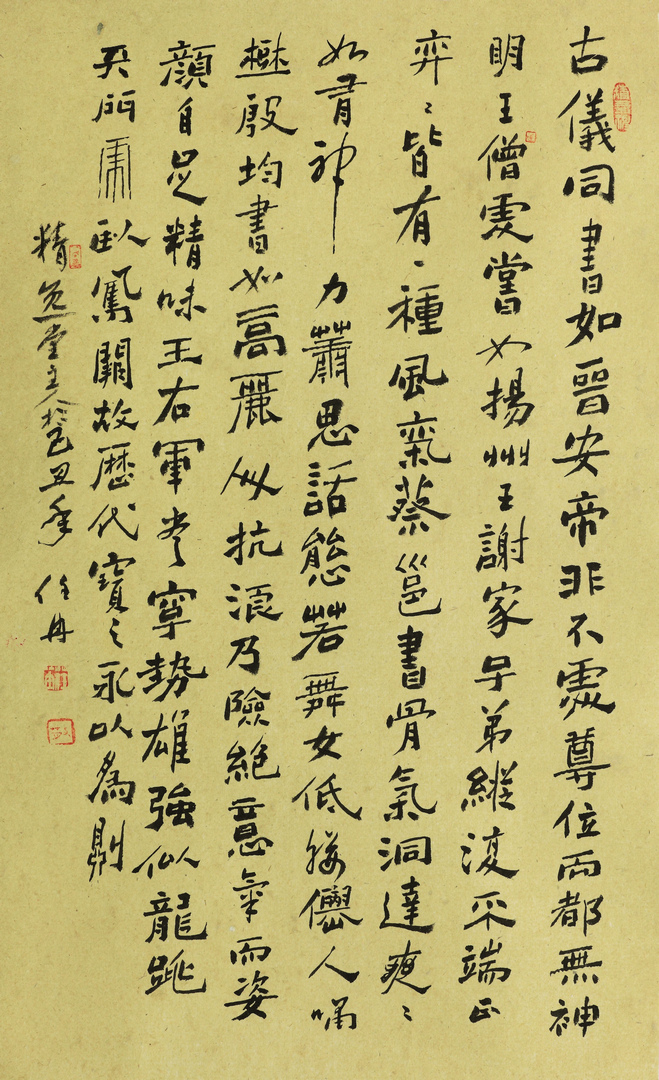 古儀同書如晉安帝非不處尊位而都無神
明王僧虔書如揚州王謝家子弟縱復不端正
弈〻皆有一種風氣蔡邕書骨氣洞達爽〻
如有神力蕭思話態若舞女低腰僊人嘯
樹殷均書如高麗人抗浪乃險絕意氣而姿
顏自足精味王右軍書字勢雄強似龍跳
天門虎臥鳳闕故歷代寶之永以為則
精 堂主人於己丑年 任冉